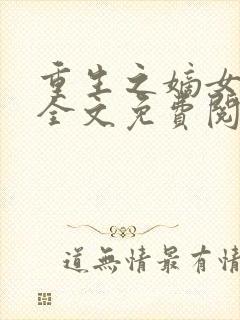 重生之嫡女
全文免费閱
道無情最有情